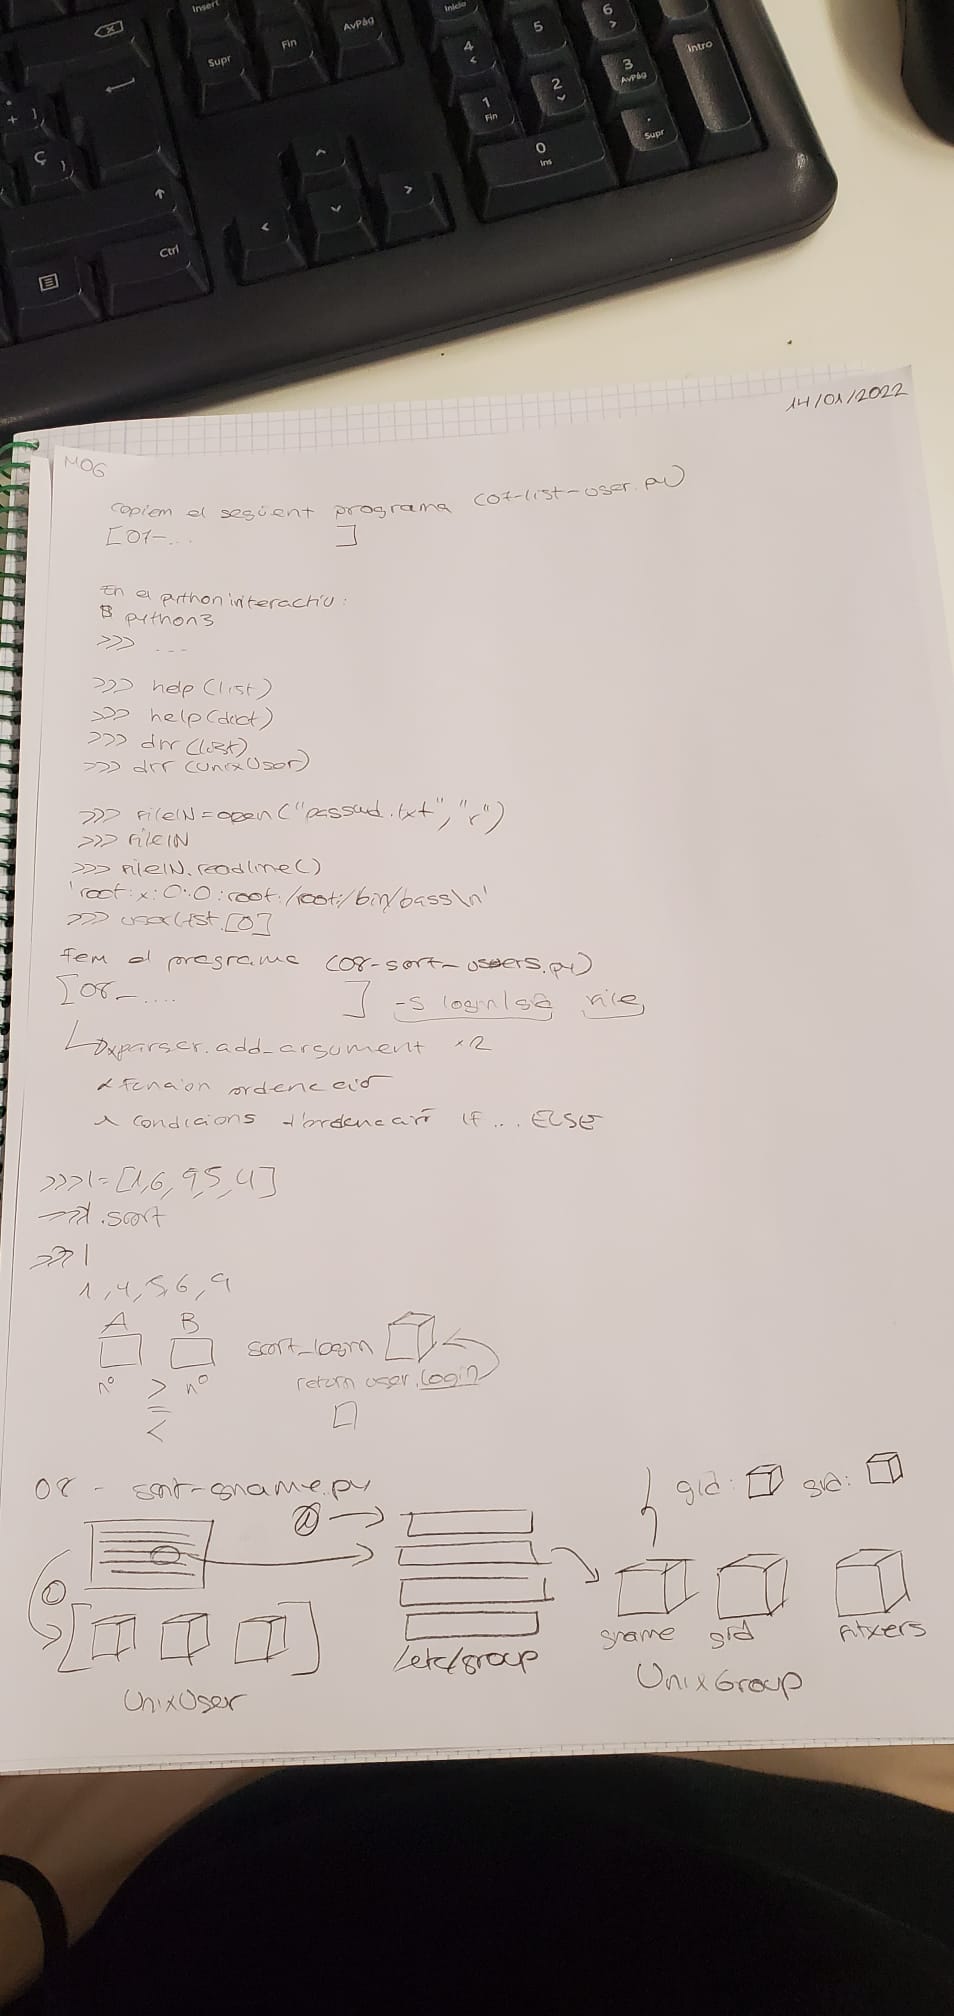 Insert
Inicio
Supr
Fin
AvPág
4
5
6
Intro
1
Fin
2
3
AvPág
0
Ins
.
Supr
Ç
Ctrl
14/01/2022
M06
copiem el següent programa (07-list-user.py)
[07-... ]
En el python interactiu:
$ python3
>>> ...
>>> help(list)
>>> help(dict)
>>> dir(list)
>>> dir(UnixUser)
>>> fileIN=open("passwd.txt","r")
>>> fileIN
>>> fileIN.readline()
'root:x:0:0:root:/root:/bin/bass\n'
>>> userList[0]
fem el programa (08-sort-users.py)
[08-.... ] -s login|gid file
parser.add_argument x2
funcion ordenació
condicions d'ordenació if ... ELSE
>>> l=[1,6,9,5,4]
>>> l.sort
>>> l
1,4,5,6,9
A B
nº > nº
=
<
sort_login
return user.login
08 - sort-gname.py
gid: gid:
gname gid fitxers
/etc/group
UnixGroup
UnixUser